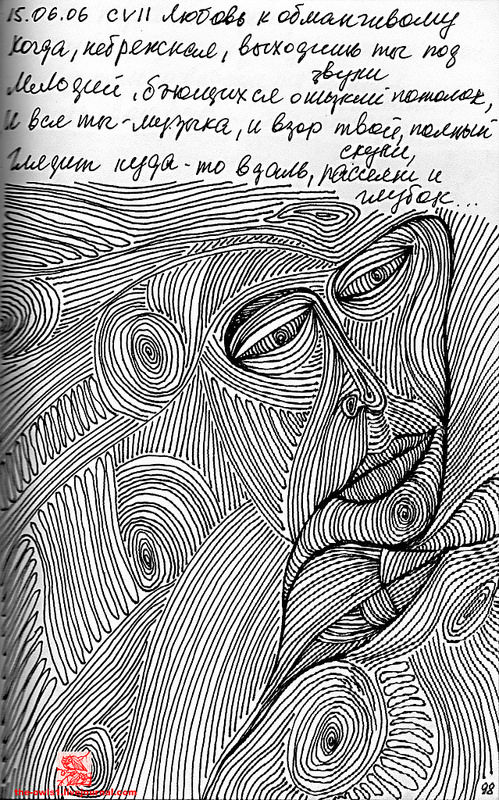 15.06.06 CVII Любовь к обманчивому
Когда, небрежная, выходишь ты под
звуки
Мелодий, бьющихся о низкий потолок,
И вся ты - музыка, и взор твой, полный
скуки,
Глядит куда-то вдаль, рассеян и
глубок...
98